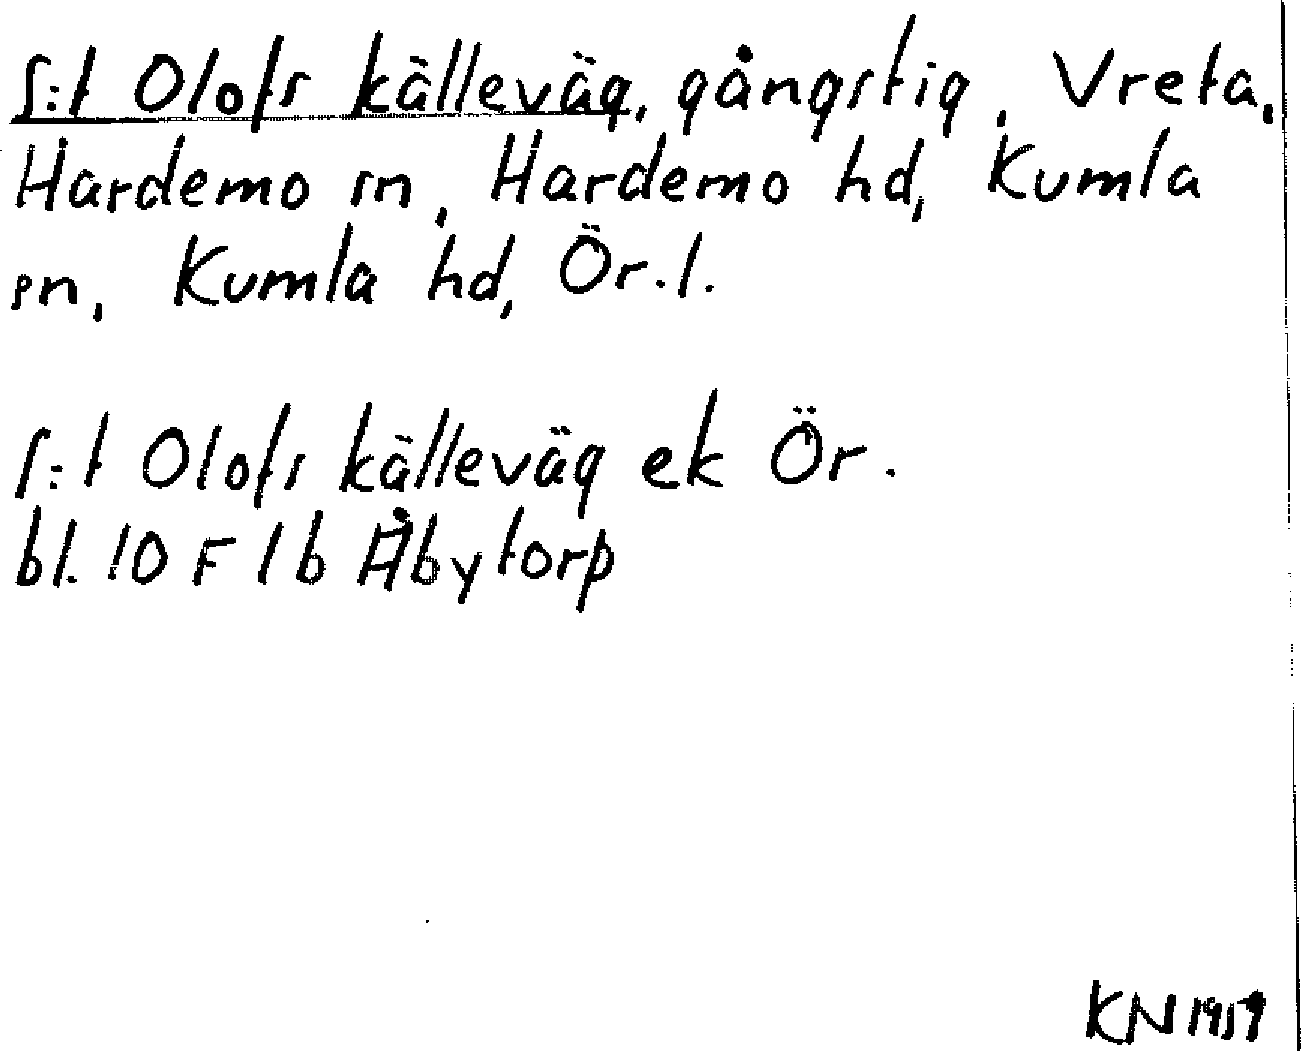 S:t Olofs källeväg, gångstig, Vreta,
Hardemo sn, Hardemo hd, Kumla
sn, Kumla hd, Ör.l.
S:t Olofs källeväg ek Ör.
bl. 10 F 1 b Åbytorp
KN 1959